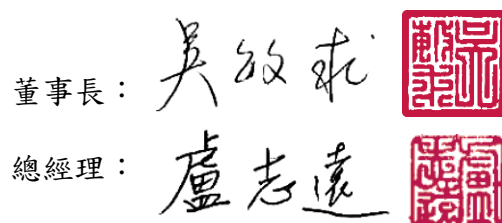 董事長： 吳敏求 吳敏求
總經理： 盧志遠 盧志遠